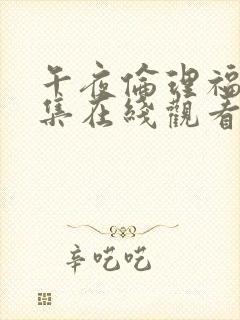 午夜倫理福
集在綫觀看
辛吃吃